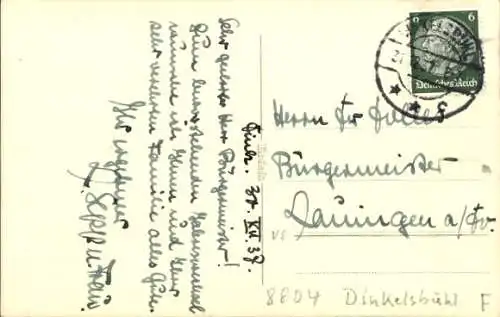 Dink. 30. XII. 37.
Sehr geehrter Herr Bürgermeister!
Zum bevorstehenden Jahreswechsel
wünschen wir Ihnen und Ihrer
sehr verehrten Familie alles Gute.
Ihr ergebener
6 6
Deutsches Reich
Herrn
Bürgermeister
Lauingen a/Do.
8804 Dinkelsbühl F